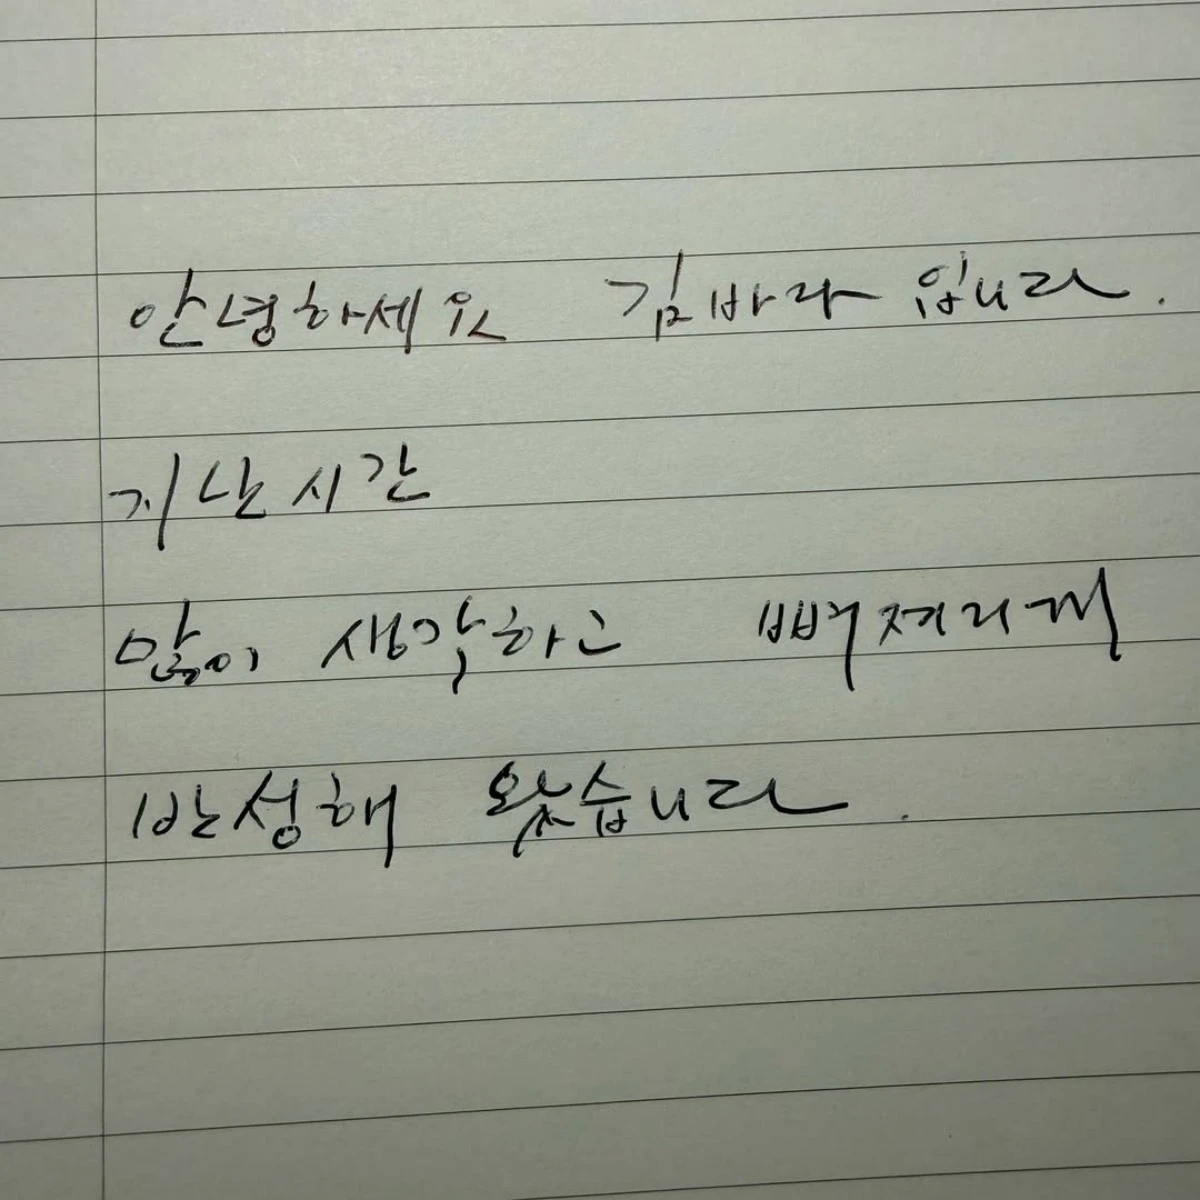 안녕하세요 김바라 입니다.
지난시간
많이 생각하고 뼈저리게
반성해 왔습니다.